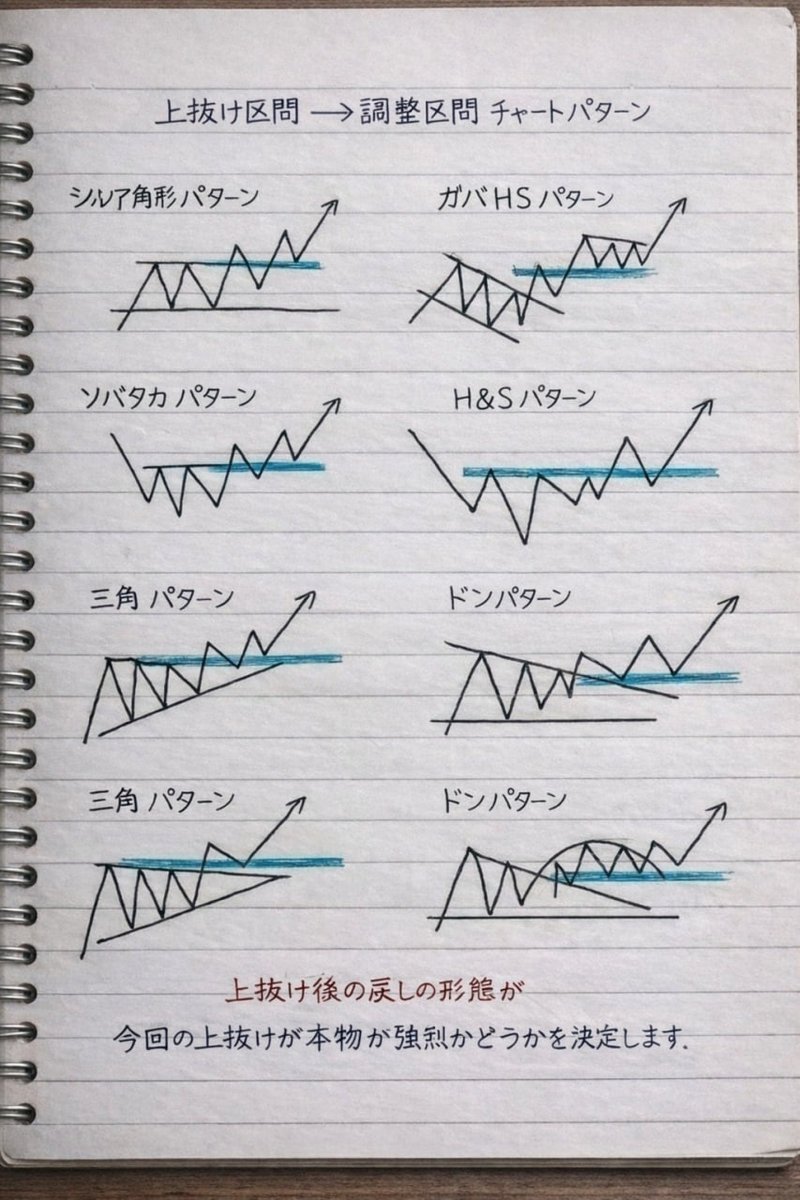 上抜け区問 → 調整区問 チャートパターン
シルア角形パターン
ガバHSパターン
ソバタカパターン
H&Sパターン
三角パターン
ドンパターン
三角パターン
ドンパターン
上抜け後の戻しの形態が
今回の上抜けが本物が強烈かどうかを決定します.